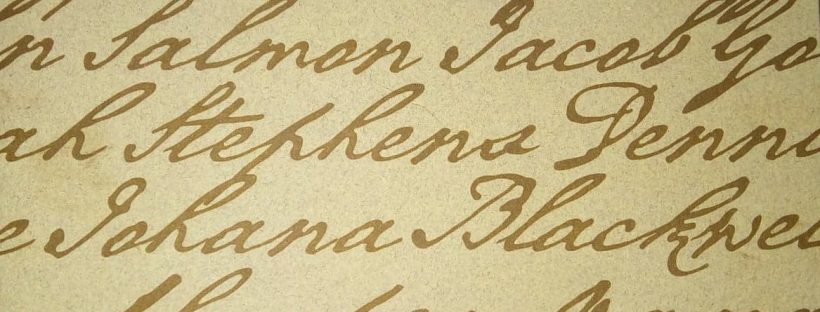 n Salmon Jacob Go
ah Stephens Denni
e Johana Blackwel